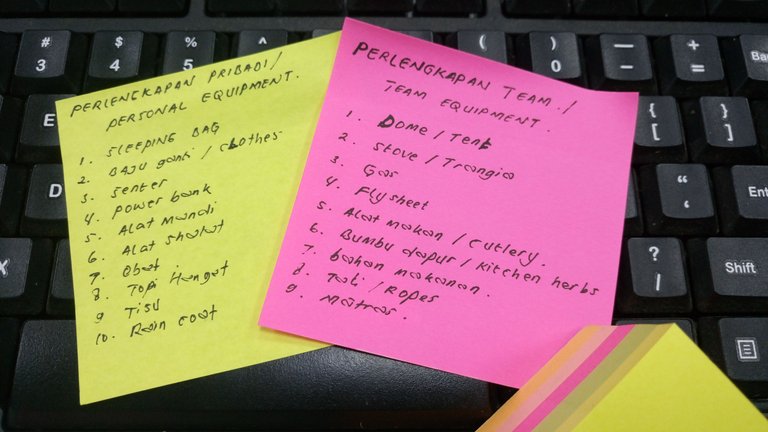 PERLENGKAPAN PRIBADI /
PERSONAL EQUIPMENT.
1. SLEEPING BAG
2. BAJU ganti / CLOthes
3. Senter
4. power bank
5. Alat Mandi
6. Alat Sholat
7. Obat.
8. Topi Hangat
9. Tisu
10. Rain coat
PERLENGKAPAN TEAM /
TEAM EQUIPMENT.
1. Dome / Tent
2. Stove / Trangia
3. Gas
4. Flysheet
5. Alat makan / Cutlery.
6. Bumbu dapur / Kitchen herbs
7. bahan makanan.
8. Tali / Ropes
9. Matras.
# 3
$ 4
% 5
^
(
) 0
— –
+ =
Ba
E
{ [
} ]
D
“ ‘
Ent
X
? /
Shift